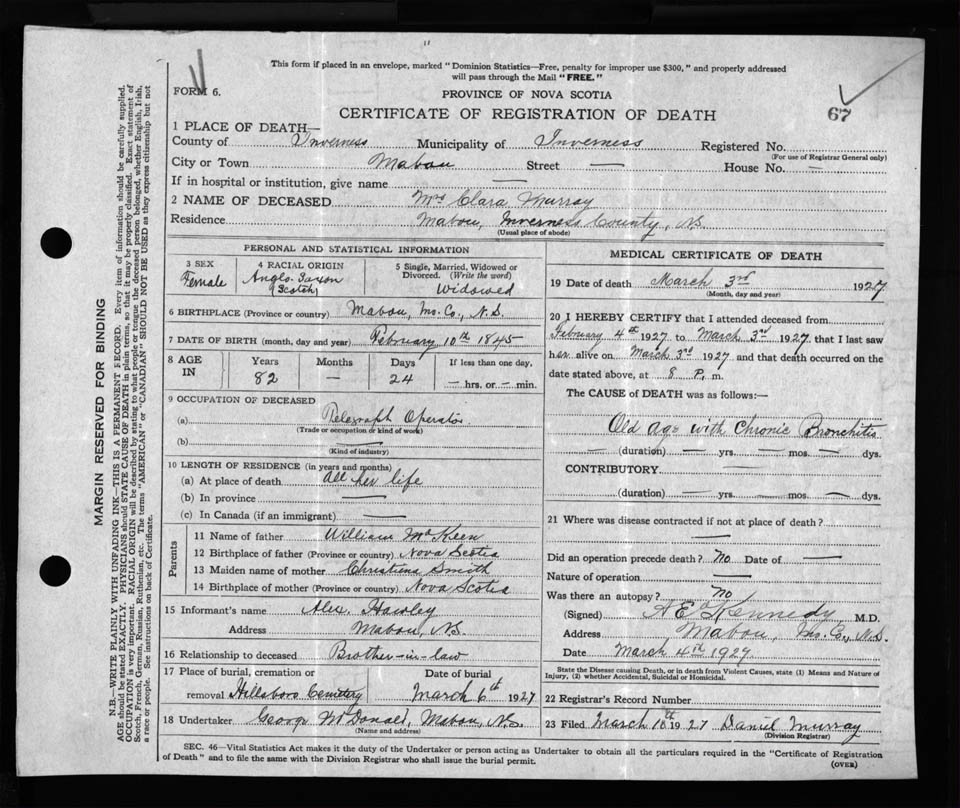 This form if placed in an envelope, marked "Dominion Statistics—Free, penalty for improper use $300," and properly addressed
will pass through the Mail "FREE."
FORM 6.
PROVINCE OF NOVA SCOTIA
67
CERTIFICATE OF REGISTRATION OF DEATH
1 PLACE OF DEATH—
County of Inverness Municipality of Inverness Registered No.
(For use of Registrar General only)
City or Town Mabou Street — House No. —
If in hospital or institution, give name —
2 NAME OF DECEASED Mrs Clara Murray
Residence Mabou, Inverness County, N.S.
(Usual place of abode)
PERSONAL AND STATISTICAL INFORMATION
3 SEX
Female
4 RACIAL ORIGIN
Anglo-Saxon
(Scotch)
5 Single, Married, Widowed or
Divorced. (Write the word)
Widowed
6 BIRTHPLACE (Province or country) Mabou, Inv. Co., N.S.
7 DATE OF BIRTH (month, day and year) February 10th 1845
8 AGE
IN
Years Months Days If less than one day,
82 — 24 — hrs. or — min.
9 OCCUPATION OF DECEASED
(a) Telegraph Operator
(Trade or occupation or kind of work)
(b) —
(Kind of industry)
10 LENGTH OF RESIDENCE (in years and months)
(a) At place of death All her life
(b) In province —
(c) In Canada (if an immigrant) —
Parents
11 Name of father William McKeen
12 Birthplace of father (Province or country) Nova Scotia
13 Maiden name of mother Christiena Smith
14 Birthplace of mother (Province or country) Nova Scotia
15 Informant's name Alex. Hawley
Address Mabou, N.S.
16 Relationship to deceased Brother-in-law
17 Place of burial, cremation or Date of burial
removal Hillsboro Cemetery March 6th 1927
18 Undertaker George McDonald, Mabou, N.S.
(Name and address)
MEDICAL CERTIFICATE OF DEATH
19 Date of death March 3rd 1927
(Month, day and year)
20 I HEREBY CERTIFY that I attended deceased from
February 4th 1927 to March 3rd 1927 that I last saw
her alive on March 3rd 1927 and that death occurred on the
date stated above, at 8 P. m.
The CAUSE of DEATH was as follows:—
Old age with Chronic Bronchitis
— (duration) — yrs. — mos. — dys.
CONTRIBUTORY —
(duration) — yrs. — mos. — dys.
21 Where was disease contracted if not at place of death? —
Did an operation precede death? No Date of —
Nature of operation —
Was there an autopsy? No
(Signed) A E Kennedy M.D.
Address Mabou, Inv. Co., N.S.
Date March 4th 1927
State the Disease causing Death, or in death from Violent Causes, state (1) Means and Nature of
Injury, (2) whether Accidental, Suicidal or Homicidal.
22 Registrar's Record Number
23 Filed March 10th 1927 Daniel Murray
(Division Registrar)
SEC. 46—Vital Statistics Act makes it the duty of the Undertaker or person acting as Undertaker to obtain all the particulars required in the "Certificate of Registration
of Death" and to file the same with the Division Registrar who shall issue the burial permit.
(OVER)
MARGIN RESERVED FOR BINDING
N.B.—WRITE PLAINLY WITH UNFADING INK—THIS IS A PERMANENT RECORD. Every item of information should be carefully supplied.
AGE should be stated EXACTLY. PHYSICIANS should STATE CAUSE OF DEATH in plain terms, so that it may be properly classified. Exact statement of
OCCUPATION is very important. RACIAL ORIGIN will be described by stating to what people or tongue the deceased person belonged, whether English, Irish,
Scotch, French, German, Russian, Ruthenian, etc. The terms "AMERICAN" or "CANADIAN" SHOULD NOT BE USED as they express citizenship but not
a race or people. See instructions on back of Certificate.